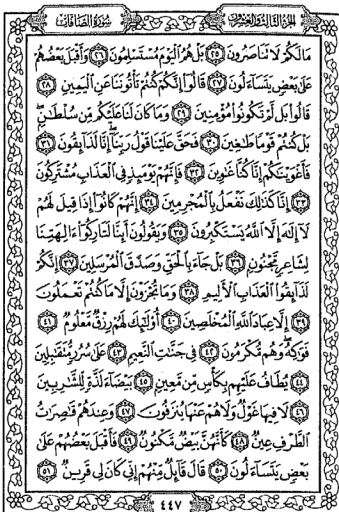 الجزء الثالث والعشرون
سورة الصافات
مَالَكُمْ لَا تَنَاصَرُونَ ٢٥ بَلْ هُمُ الْيَوْمَ مُسْتَسْلِمُونَ ٢٦ وَأَقْبَلَ بَعْضُهُمْ
عَلَىٰ بَعْضٍ يَتَسَاءَلُونَ ٢٧ قَالُوا إِنَّكُمْ كُنتُمْ تَأْتُونَنَا عَنِ الْيَمِينِ ٢٨
قَالُوا بَل لَّمْ تَكُونُوا مُؤْمِنِينَ ٢٩ وَمَا كَانَ لَنَا عَلَيْكُم مِّن سُلْطَانٍ
بَلْ كُنتُمْ قَوْمًا طَاغِينَ ٣٠ فَحَقَّ عَلَيْنَا قَوْلُ رَبِّنَا إِنَّا لَذَائِقُونَ ٣١
فَأَغْوَيْنَاكُمْ إِنَّا كُنَّا غَاوِينَ ٣٢ فَإِنَّهُمْ يَوْمَئِذٍ فِي الْعَذَابِ مُشْتَرِكُونَ
٣٣ إِنَّا كَذَٰلِكَ نَفْعَلُ بِالْمُجْرِمِينَ ٣٤ إِنَّهُمْ كَانُوا إِذَا قِيلَ لَهُمْ
لَا إِلَٰهَ إِلَّا اللَّهُ يَسْتَكْبِرُونَ ٣٥ وَيَقُولُونَ أَئِنَّا لَتَارِكُوا آلِهَتِنَا
لِشَاعِرٍ مَّجْنُونٍ ٣٦ بَلْ جَاءَ بِالْحَقِّ وَصَدَّقَ الْمُرْسَلِينَ ٣٧ إِنَّكُمْ
لَذَائِقُوا الْعَذَابِ الْأَلِيمِ ٣٨ وَمَا تُجْزَوْنَ إِلَّا مَا كُنتُمْ تَعْمَلُونَ
٣٩ إِلَّا عِبَادَ اللَّهِ الْمُخْلَصِينَ ٤٠ أُولَٰئِكَ لَهُمْ رِزْقٌ مَّعْلُومٌ ٤١
فَوَاكِهُ وَهُم مُّكْرَمُونَ ٤٢ فِي جَنَّاتِ النَّعِيمِ ٤٣ عَلَىٰ سُرُرٍ مُّتَقَابِلِينَ
٤٤ يُطَافُ عَلَيْهِم بِكَأْسٍ مِّن مَّعِينٍ ٤٥ بَيْضَاءَ لَذَّةٍ لِّلشَّارِبِينَ
٤٦ لَا فِيهَا غَوْلٌ وَلَا هُمْ عَنْهَا يُنزَفُونَ ٤٧ وَعِندَهُمْ قَاصِرَاتُ
الطَّرْفِ عِينٌ ٤٨ كَأَنَّهُنَّ بَيْضٌ مَّكْنُونٌ ٤٩ فَأَقْبَلَ بَعْضُهُمْ عَلَىٰ
بَعْضٍ يَتَسَاءَلُونَ ٥٠ قَالَ قَائِلٌ مِّنْهُمْ إِنِّي كَانَ لِي قَرِينٌ ٥١
٤٤٧